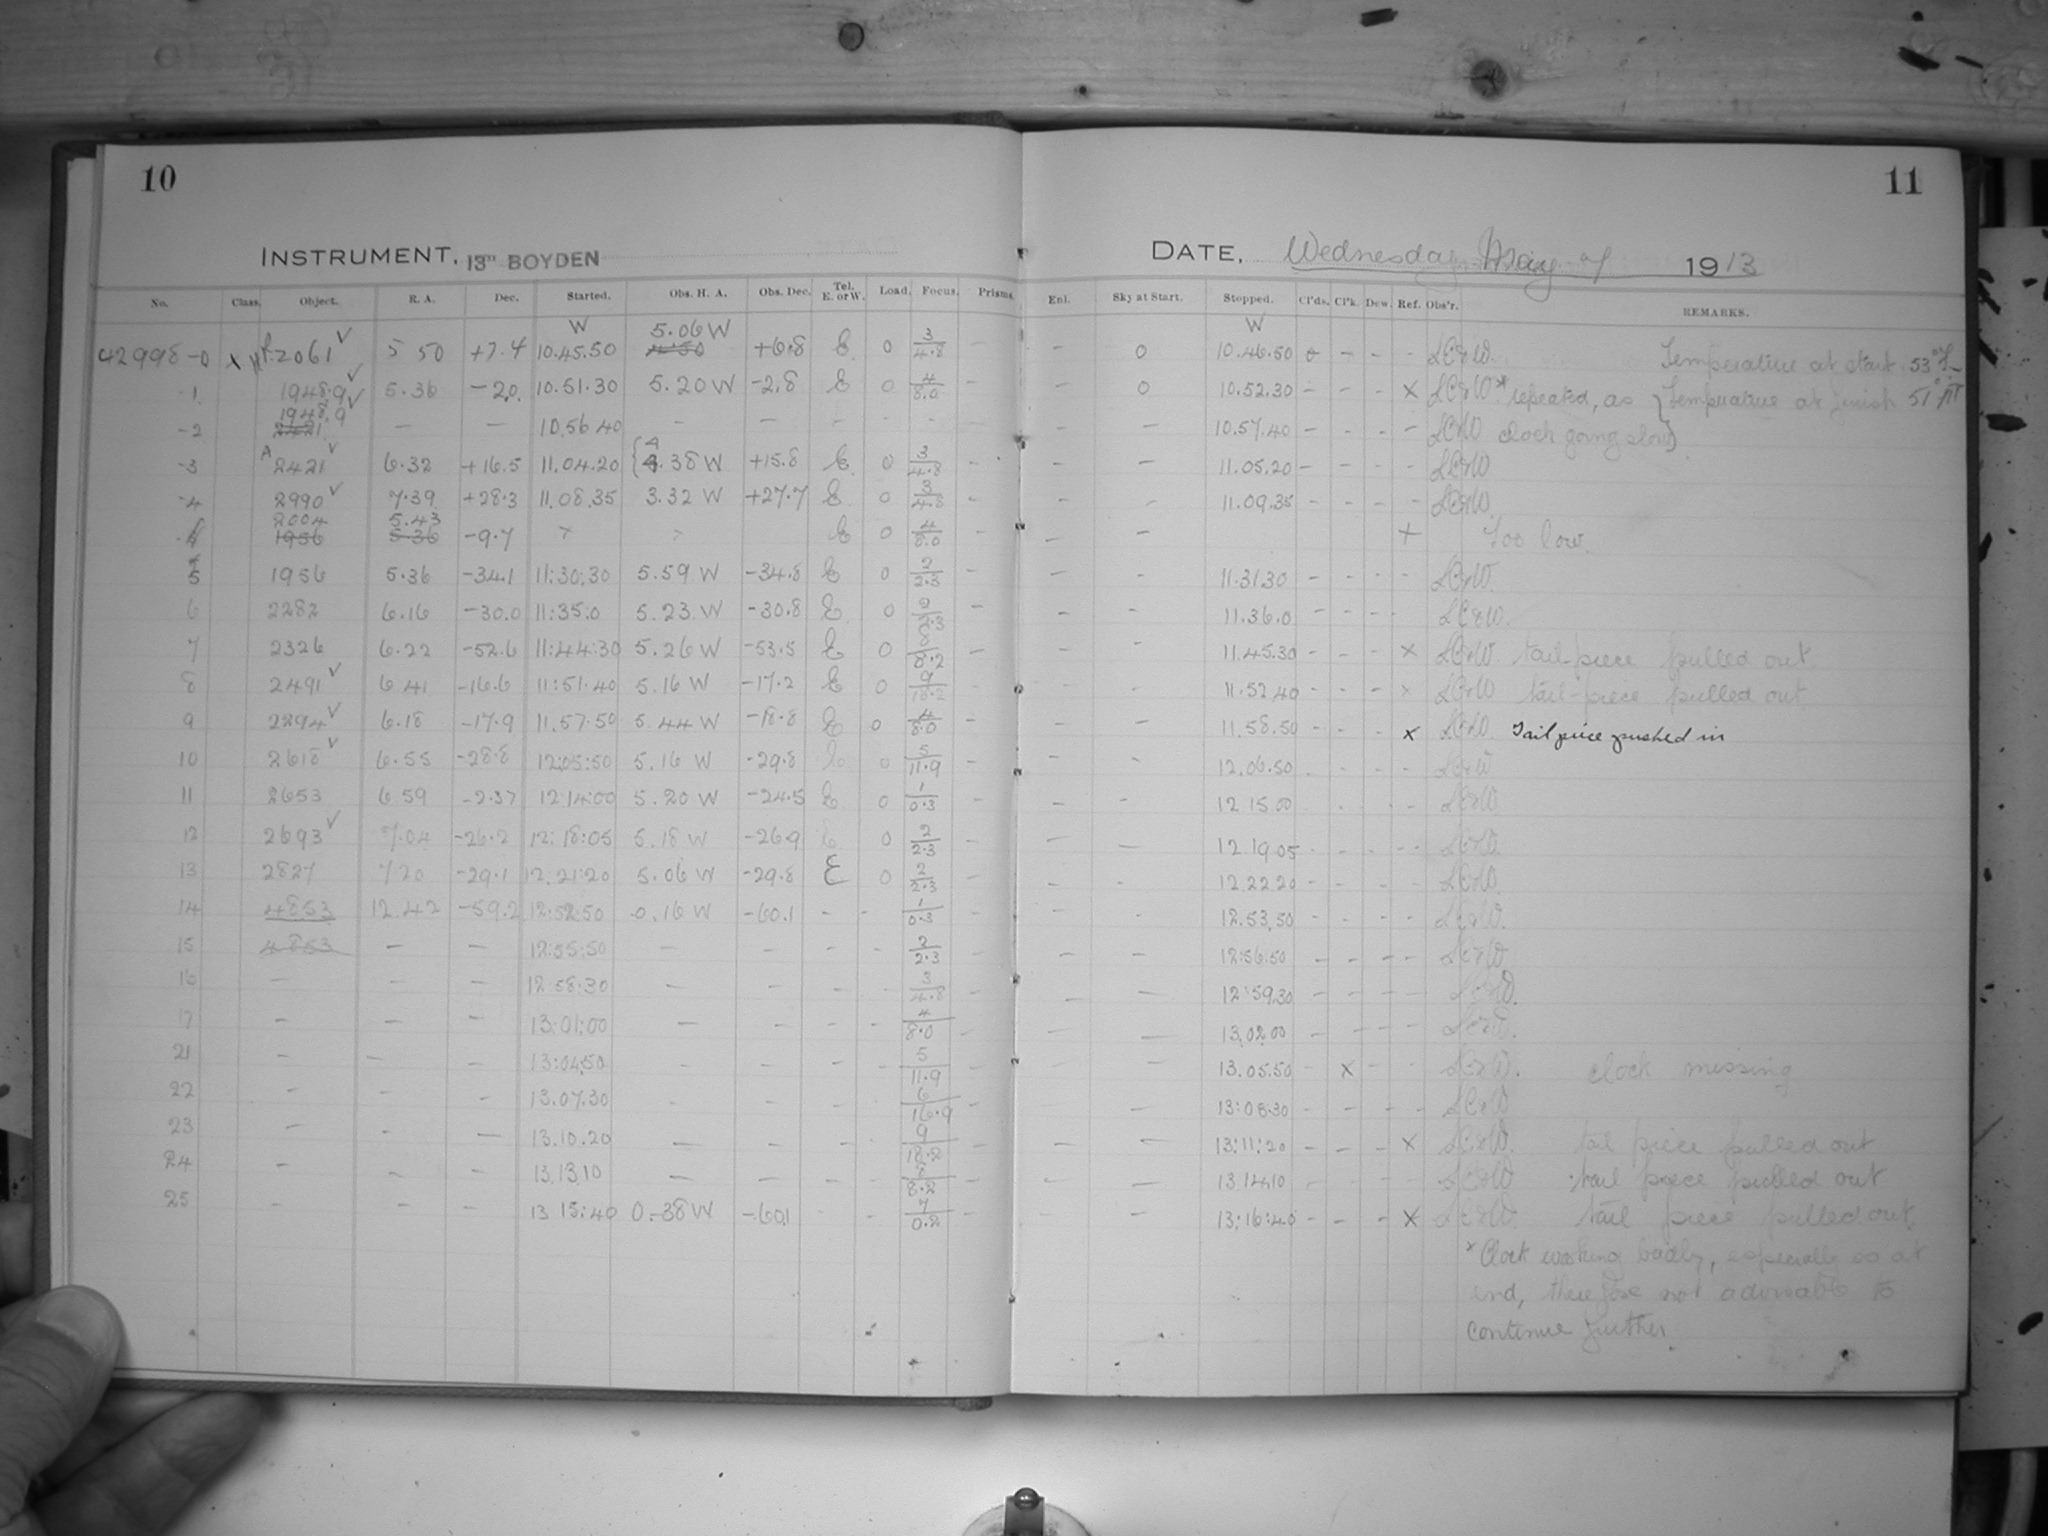 10
11
INSTRUMENT, 13" BOYDEN
DATE, Wednesday, May 7 1913
No. Class. Object. R. A. Dec. Started. Obs. H. A. Obs. Dec. Tel. E. or W. Load. Focus. Prisms. Enl. Sky at Start. Stopped. Cl'ds. Cl'k. Dew. Ref. Obs'r. REMARKS.
W 5.06 W W
42998-0 x 2061 √ 5 50 +7.4 10.45.50 4.50 +6.8 E 0 3/4.8 – – 0 10.46.50 0 – – – LCW. Temperature at start 53°F
-1 1948.9 √ 5.36 -2.0. 10.51.30 5.20 W -2.8 E 0 4/8.0 – – 0 10.52.30 – – – x LCW * repeated, as } Temperature at finish 51°F
1948.9 √
-2 2421 – – 10.56 40 – – – – – – 10.57.40 – – – – LCW clock going slow }
-3 A 2421 √ 6.32 +16.5 11.04.20 { 4.38 W +15.8 E 0 3/4.8 – – 11.05.20 – – – – LCW
-4 2990 √ 7.39 +28.3 11.08.35 3.32 W +27.7 E 0 3/4.8 – – – 11.09.35 – – – – LCW.
2004 5.43
1956 5.36 -9.7 x x E 0 4/8.0 – – – + Too low.
5 1956 5.36 -34.1 11:30:30 5.59 W -34.8 E 0 2/2.3 – – – 11.31.30 – – – – LCW.
6 2282 6.16 -30.0 11:35.0 5.23 W -30.8 E 0 2/2.3 – – – 11.36.0 – – – – LCW.
7 2326 6.22 -52.6 11:44:30 5.26 W -53.5 E 0 8/8.2 – – – 11.45.30 – – – x LCW. tail-piece pulled out.
8 2491 √ 6 41 -16.6 11:51.40 5.16 W -17.2 E 0 9/18.2 – – 11.52.40 – – – x LCW tail-piece pulled out
9 2294 √ 6.18 -17.9 11.57.50 5.44 W -18.8 E 0 4/8.0 – – – 11.58.50 – – – x LCW Tail piece pushed in
10 2618 √ 6.55 -28.8 12:05:50 5.16 W -29.8 E 0 5/11.9 – – – 12.06.50 . – – – LCW
11 2653 6.59 -2.37 12:14:00 5.20 W -24.5 E 0 1/0.3 – – – 12 15.00 . . – – LCW
12 2693 √ 7.04 -26.2 12:18:05 5.18 W -26.9 E 0 2/2.3 – – – 12.19.05 . – – – LCW.
13 2827 7 20 -29.1 12.21:20 5.06 W -29.8 E 0 2/2.3 – – – 12.22.20 – – – – LCW.
14 4853 12.42 -59.2 12:52:50 0.16 W -60.1 – – 1/0.3 – – – 12.53.50 – – – – LCW.
15 4853 – – 12:55:50 – – – – 2/2.3 – – – 12:56.50 – – – – LCW
16 – – – 12:58:30 – – – – 3/4.8 – – – 12:59.30 – – – – LCW.
17 – – – 13:01:00 – – – – 4/8.0 – – – 13.02.00 – – – – LCW.
21 – – – 13:04:50 – – – – 5/11.9 – – – 13.05.50 – x – – LCW. clock missing
22 – – – 13.07.30 – – – – 6/16.9 – – 13:08.30 – – – – LCW
23 – – – 13.10.20 – – – – 9/18.2 – – – 13:11:20 – – – x LCW. tail piece pulled out
24 – – – 13.13.10 – – – – 8/8.2 – – – 13.14.10 – – – – LCW tail piece pulled out
25 – – – 13 15:40 0.38 W -60.1 – – 7/0.2 – – – 13:16:40 – – – x LCW. tail piece pulled out.
* Clock working badly, especially so at
end, therefore not advisable to
continue further.